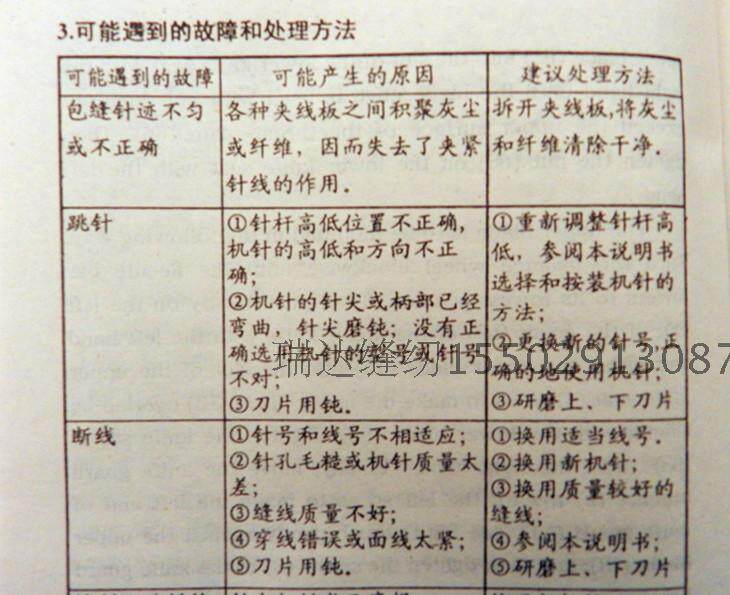 3.可能遇到的故障和处理方法
可能遇到的故障
可能产生的原因
建议处理方法
包缝针迹不匀
或不正确
各种夹线板之间积聚灰尘
或纤维，因而失去了夹紧
针线的作用.
拆开夹线板,将灰尘
和纤维清除干净.
跳针
①针杆高低位置不正确,
机针的高低和方向不正
确;
②机针的针尖或柄部已经
弯曲，针尖磨钝；没有正
确选用机针的型号或针号
不对;
③刀片用钝.
①重新调整针杆高
低，参阅本说明书
选择和按装机针的
方法;
②更换新的针号,正
确的地使用机针;
③研磨上、下刀片
瑞达缝纫15502913087
断线
①针号和线号不相适应;
②针孔毛糙或机针质量太
差;
③缝线质量不好;
④穿线错误或面线太紧;
⑤刀片用钝.
①换用适当线号.
②换用新机针;
③换用质量较好的
缝线;
④参阅本说明书;
⑤研磨上、下刀片